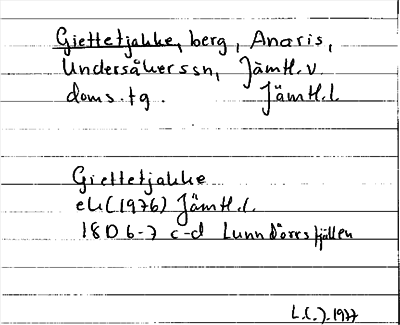 Giettetjakke, berg, Anaris,
Undersåkers sn, Jämtl. v.
doms. tg. Jämtl. l.
Giettetjakke
ek (1976) Jämtl. l.
18D 6-7 c-d Lunndörrsfjällen
L.(.).1977